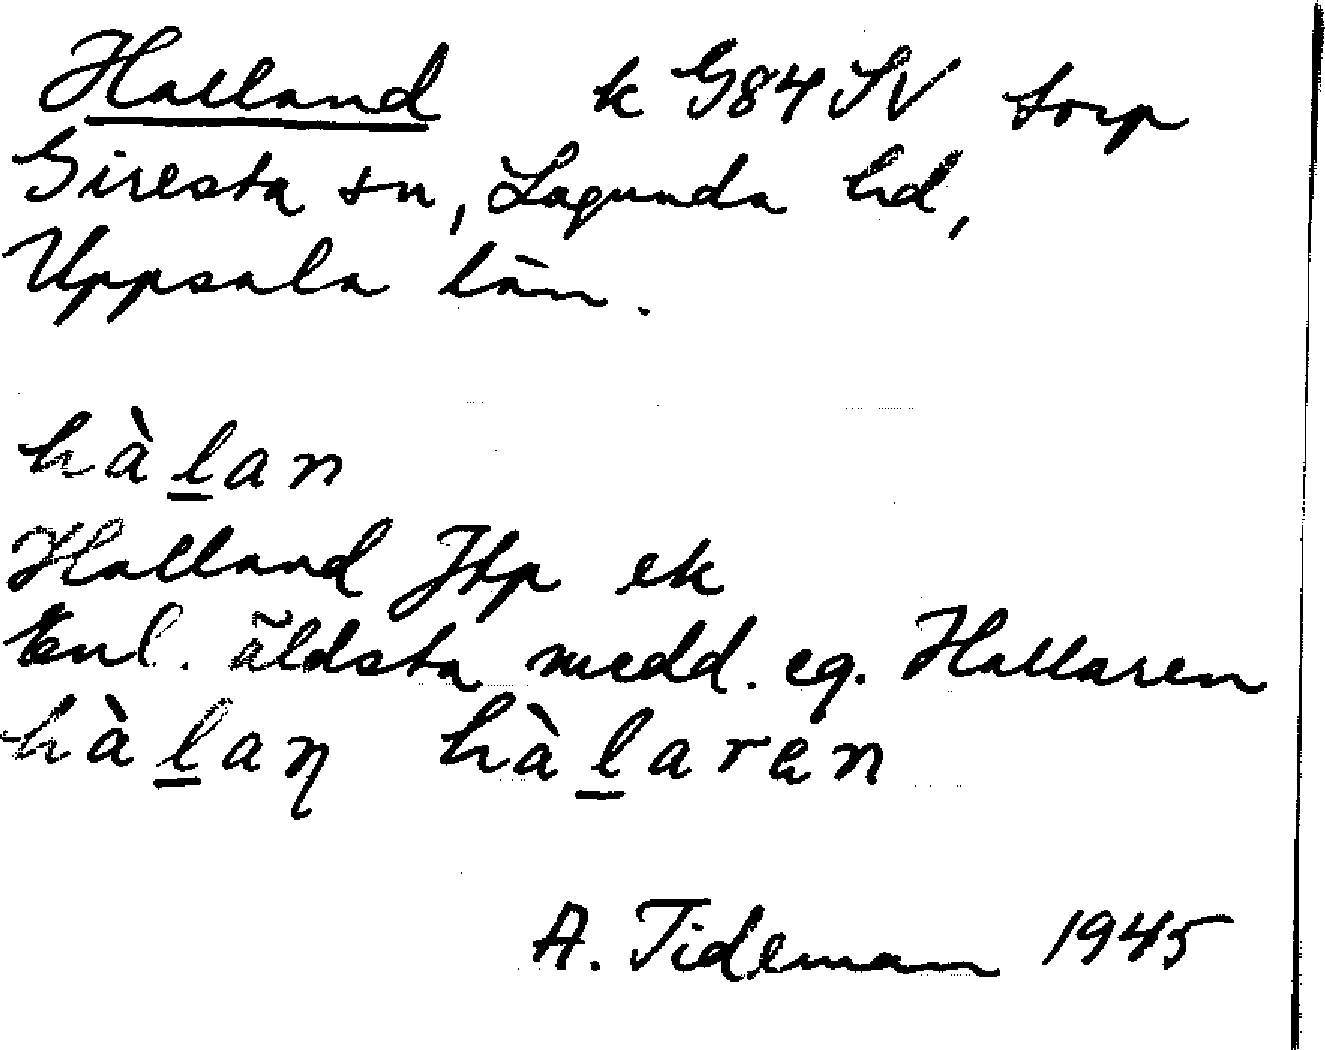 Halland k G84SV torp
Giresta sn, Lagunda hd,
Uppsala län.
hàl̲an
Halland Jbp ek
Enl. äldsta medd. eg. Hallaren
hàl̲aņ hàl̲aren
A. Tideman 1945